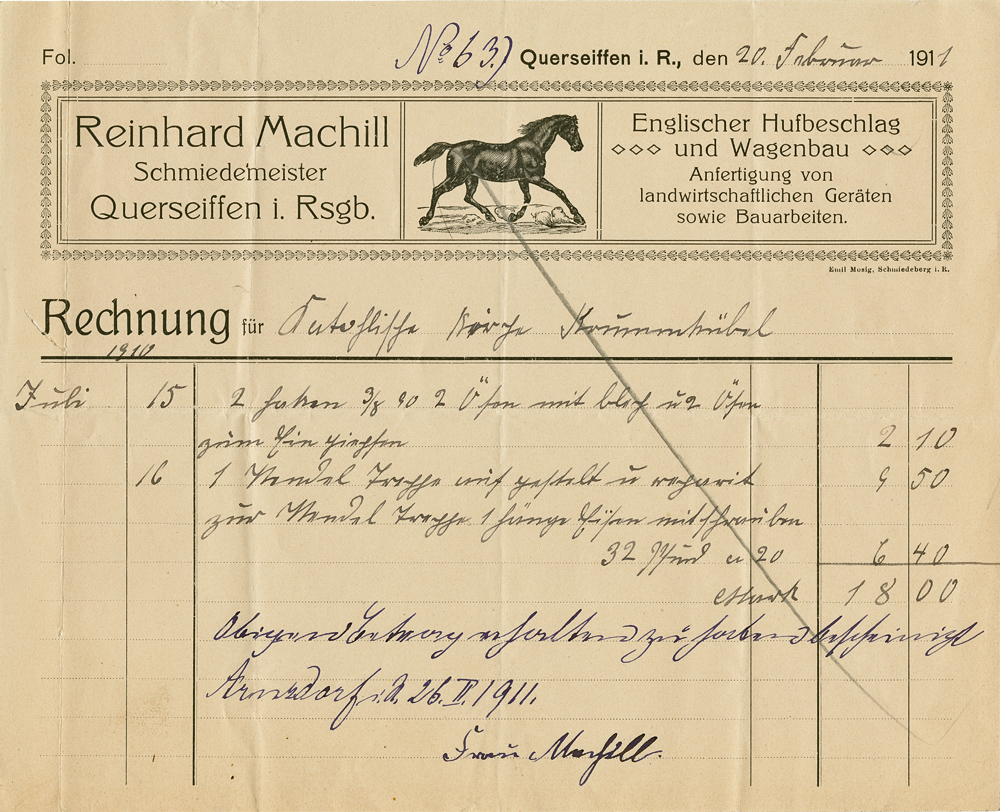 Fol.
No 63.) Querseiffen i. R., den 20. Februar 1911
Reinhard Machill
Schmiedemeister
Querseiffen i. Rsgb.
Englischer Hufbeschlag
und Wagenbau
Anfertigung von
landwirtschaftlichen Geräten
sowie Bauarbeiten.
Emil Mosig, Schmiedeberg i. R.
Rechnung für Katohlische Kirche Krummhübel
1910
Juli 15 2 haken 3/8 90 2 Ösen mit blech u 2 Ösen
zum Ein 2 10
16 1 Wendel Treppe auf gestelt u reparit 9 50
zur Wendel Treppe 1 hänge Eisen mit schrauben
32 Pfund a 20 6 40
Mark 18 00
Obigen Betrag erhalten zu haben bescheinigt
Arnsdorf i. R. 26. II. 1911.
Frau Machill.